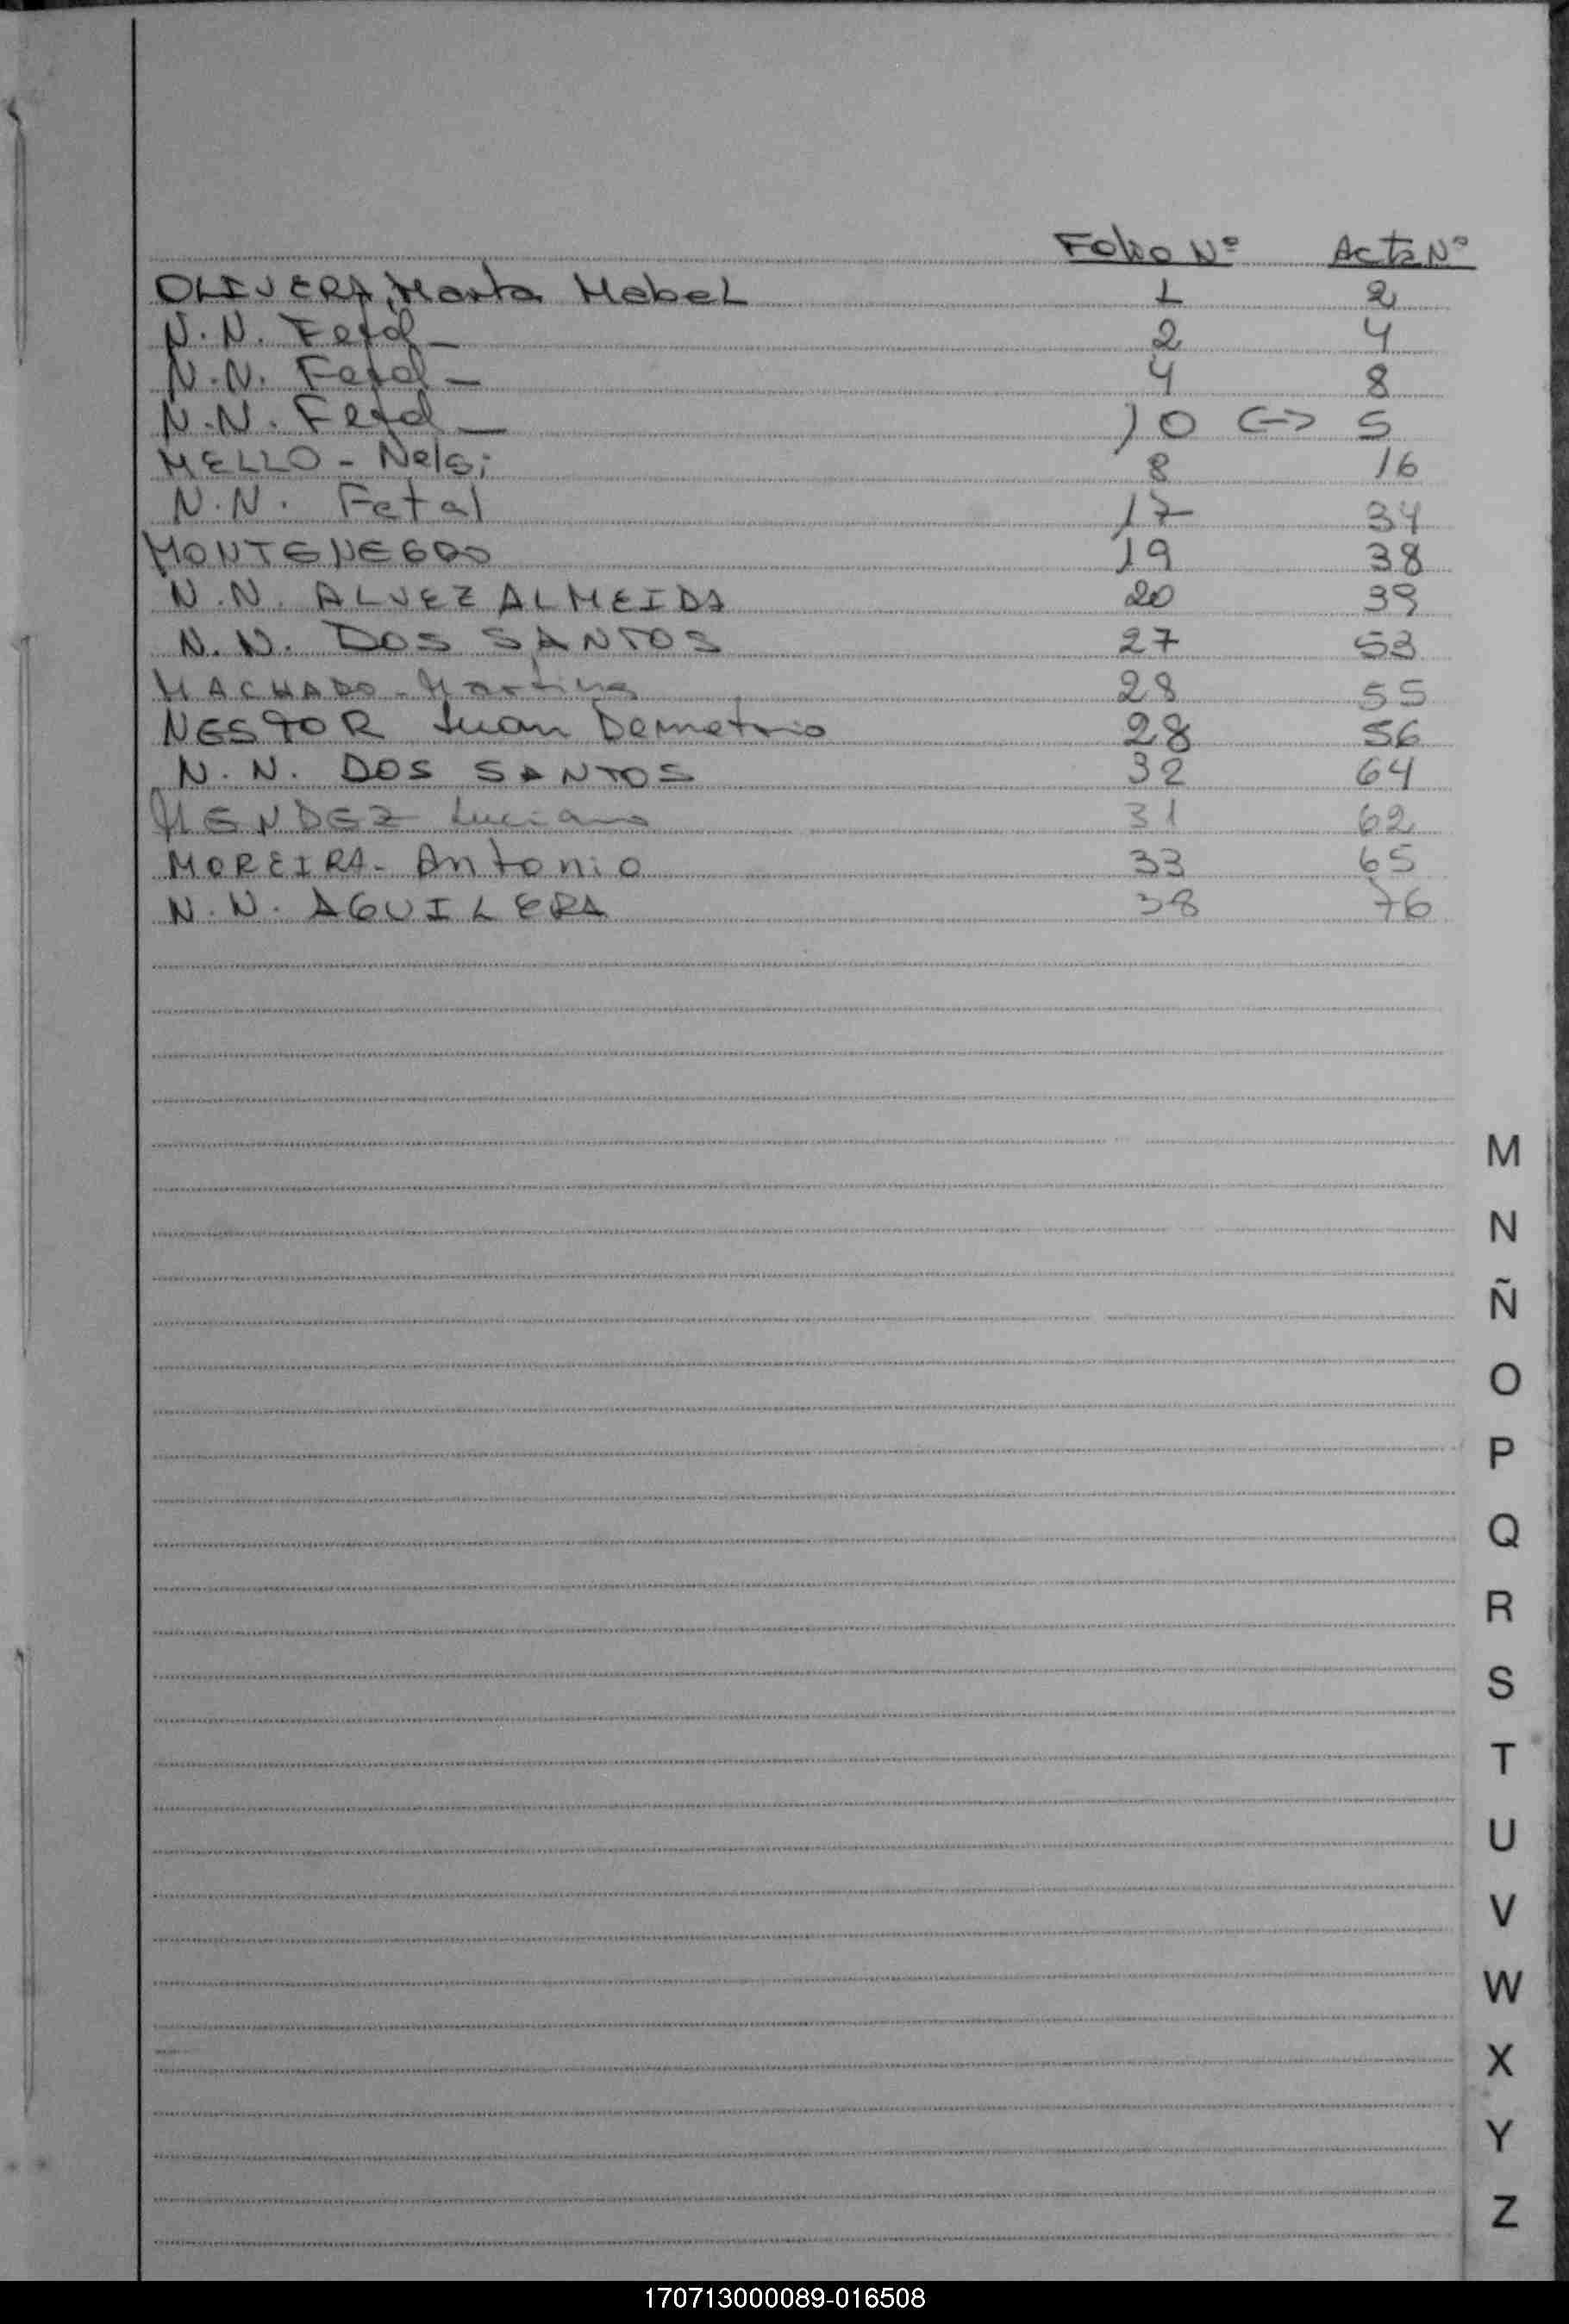 Folio Nº Acta Nº
OLIVERA, Marta Mabel 1 2
N.N. Fetal - 2 4
N.N. Fetal - 4 8
N.N. Fetal - 10 <-> 5
MELLO - Nelsi 8 16
N.N. Fetal 17 34
MONTENEGRO 19 38
N.N. ALVEZ ALMEIDA 20 39
N.N. DOS SANTOS 27 53
MACHADO - Martina 28 55
NESTOR Juan Demetrio 28 56
N.N. DOS SANTOS 32 64
MENDEZ Luciano 31 62
MOREIRA - Antonio 33 65
N.N. AGUILERA 38 76
M
N
Ñ
O
P
Q
R
S
T
U
V
W
X
Y
Z
170713000089-016508